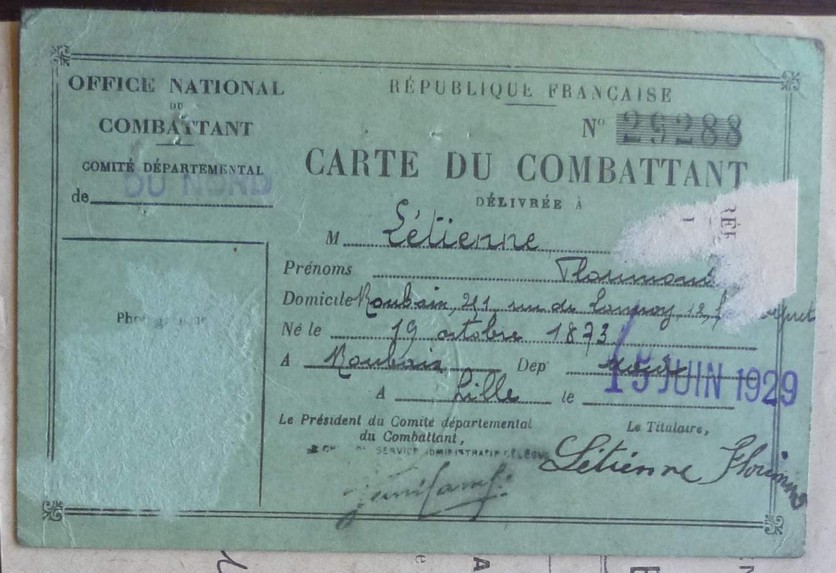 OFFICE NATIONAL
DU
COMBATTANT
COMITÉ DÉPARTEMENTAL
DU NORD
de
Photographie
RÉPUBLIQUE FRANÇAISE
N° 29288
CARTE DU COMBATTANT
DÉLIVRÉE À
M Létienne
Prénoms Florimond
Domicile Roubaix, 241, rue de Lannoy, 12,
Né le 19 octobre 1873
A Roubaix Dep Nord
A Lille le 15 JUIN 1929
Le Président du Comité départemental
du Combattant,
Le Titulaire,
SERVICE ADMINISTRATIF DÉLÉGUÉ
Létienne Florimond